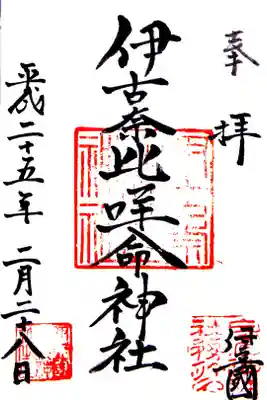 奉拝
伊豆國
伊古奈比咩命神社
平成二十五年二月二十八日